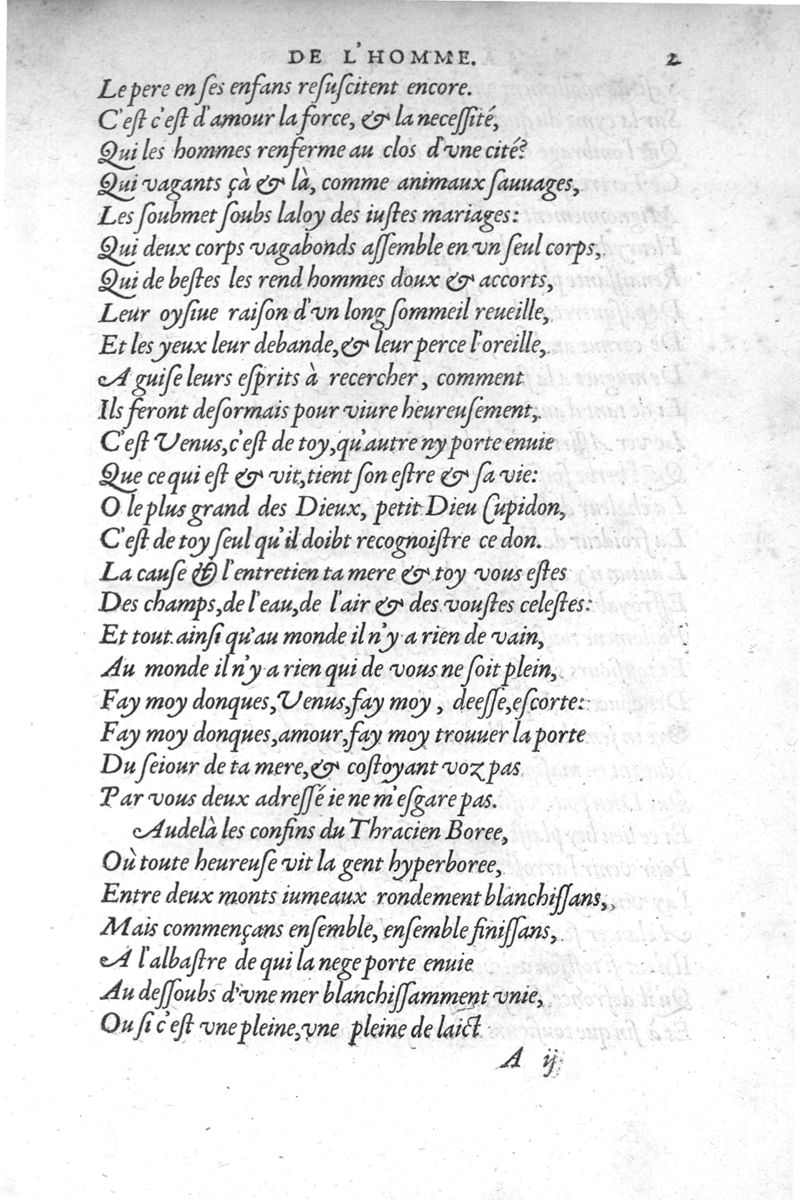 DE L'HOMME. 2
Le pere en ſes enfans reſuſcitent encore.
C'eſt c'eſt d'amour la force, & la neceſſité,
Qui les hommes renferme au clos d'vne cité?
Qui vagants çà & là, comme animaux ſauuages,
Les ſoubmet ſoubs laloy des iuſtes mariages:
Qui deux corps vagabonds aſſemble en vn ſeul corps,
Qui de beſtes les rend hommes doux & accorts,
Leur oyſiue raiſon d'vn long ſommeil reueille,
Et les yeux leur debande, & leur perce l'oreille,
A guiſe leurs eſprits à recercher, comment
Ils feront deſormais pour viure heureuſement,
C'eſt Venus, c'eſt de toy, qu'autre ny porte enuie
Que ce qui eſt & vit, tient ſon eſtre & ſa vie:
O le plus grand des Dieux, petit Dieu Cupidon,
C'eſt de toy ſeul qu'il doibt recognoiſtre ce don.
La cauſe & l'entretien ta mere & toy vous eſtes
Des champs, de l'eau, de l'air & des vouſtes celeſtes:
Et tout ainſi qu'au monde il n'y a rien de vain,
Au monde il n'y a rien qui de vous ne ſoit plein,
Fay moy donques, Venus, fay moy, deeſſe, eſcorte:
Fay moy donques, amour, fay moy trouuer la porte
Du ſeiour de ta mere, & coſtoyant voz pas
Par vous deux adreſſé ie ne m'eſgare pas.
Audelà les confins du Thracien Boree,
Où toute heureuſe vit la gent hyperboree,
Entre deux monts iumeaux rondement blanchiſſans,
Mais commençans enſemble, enſemble finiſſans,
A l'albaſtre de qui la nege porte enuie
Au deſſoubs d'vne mer blanchiſſamment vnie,
Ou ſi c'eſt vne pleine, vne pleine de laict
A ij